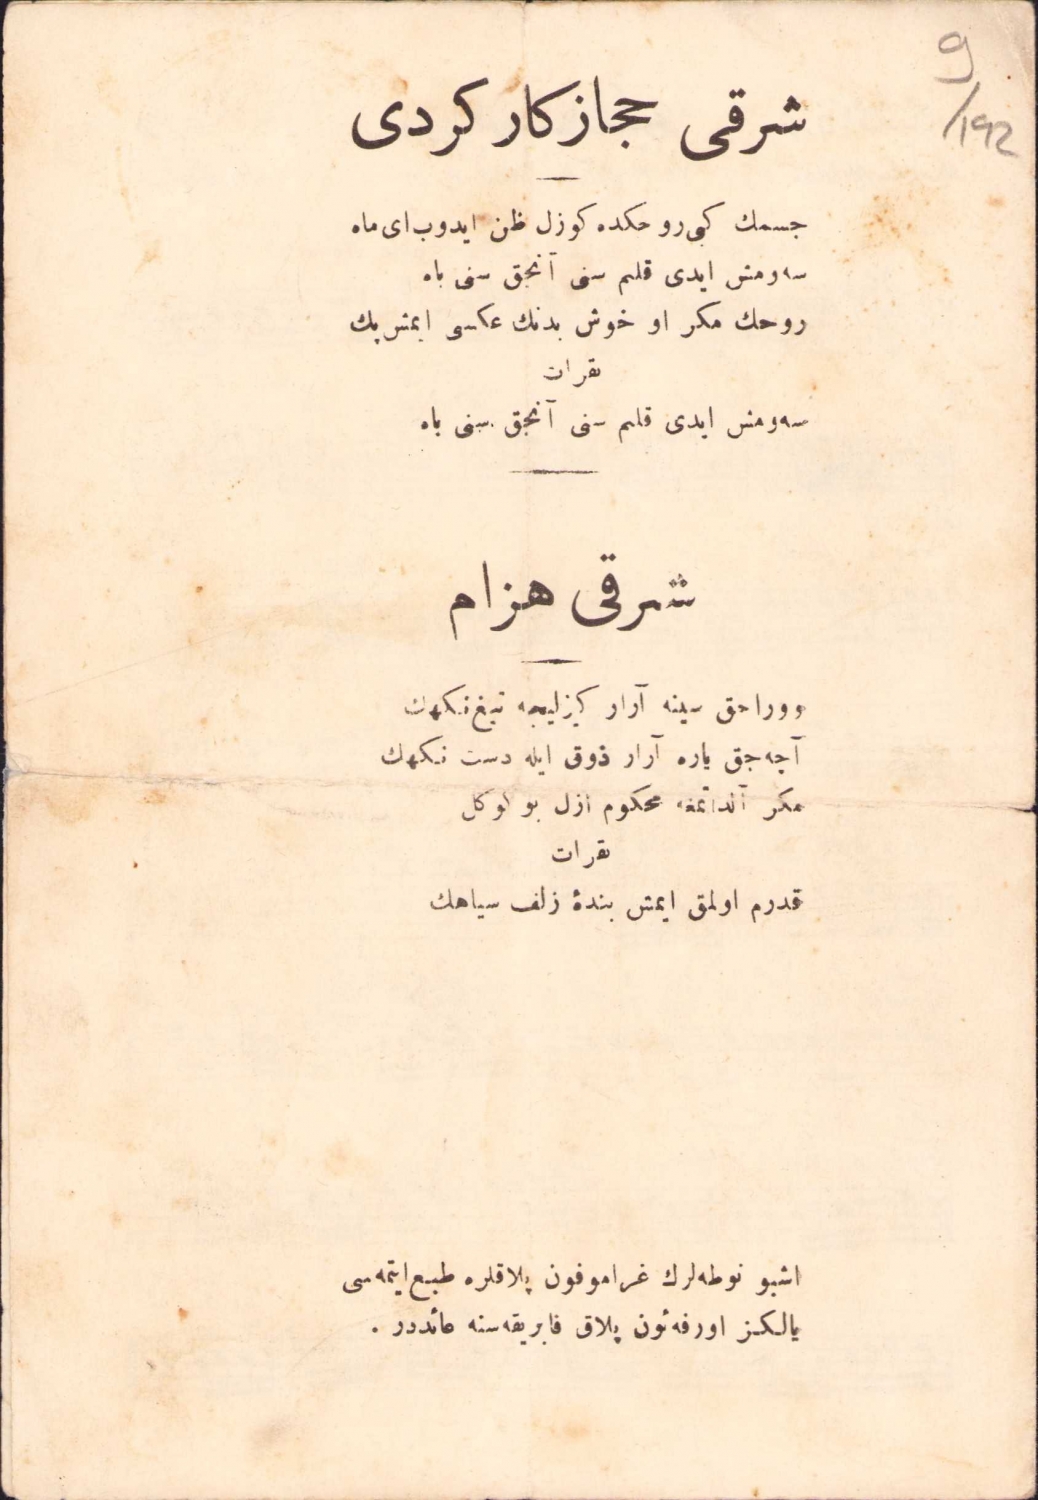 9
/192
شرقی حجازکار کردی
جسمك کبی روحکده کوزل ظن ایدوب ای ماه
سه‌ومش ایدی قلبم سنی آنجق سنی باه
روحك مکر او خوش بدنك عکسی ایمش پك
نقرات
سه‌ومش ایدی قلبم سنی آنجق سنی باه
شرقی هزام
ووراجق سینه آرار کیزلیجه تیغ نکهك
آچه‌جق یاره آرار ذوق ایله دست نکهك
مکر آلداتمغه محکوم ازل بو کوکل
نقرات
قدرم اولمق ایمش بندهٔ زلف سیاهك
اشبو نوطه‌لرك غراموفون پلاقلره طبع ایتمه‌سی
یالکز اورفه‌ئون پلاق فابریقه‌سنه عائددر .